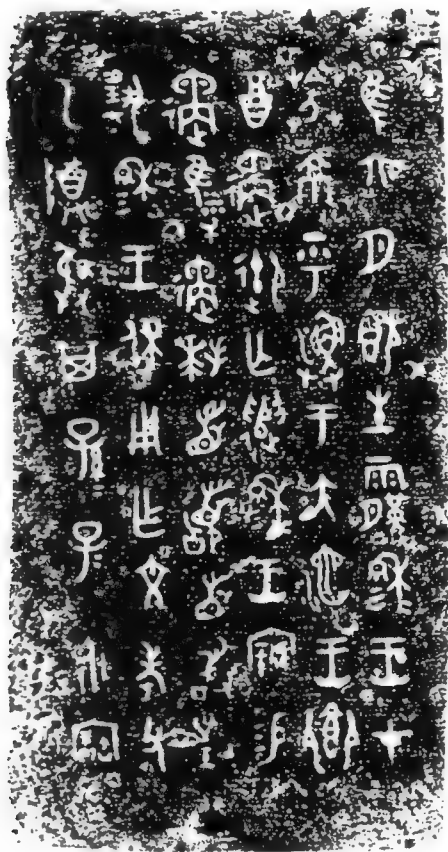 隹六月既生霸穆穆王才
䒶京乎漁于大池王鄉
酉遹御亡遣穆穆王親易
遹遹拜首𩒨首敢對
揚穆穆王休用乍文考父
乙尊彝其孫孫子子永寶